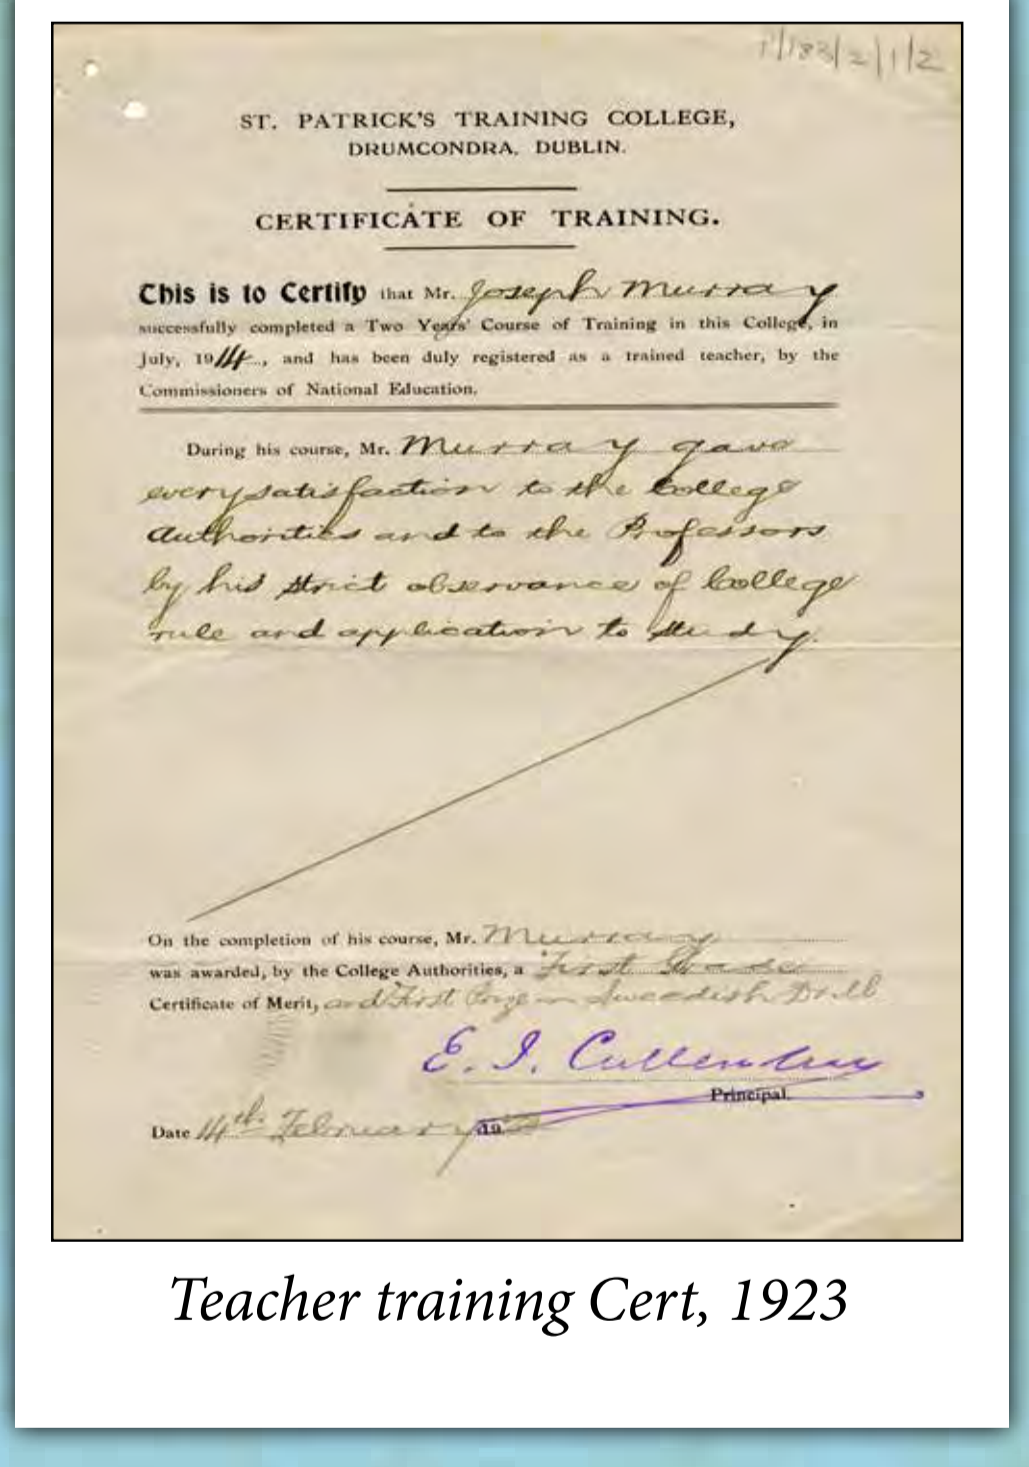 1/183/2/1/2
ST. PATRICK'S TRAINING COLLEGE,
DRUMCONDRA, DUBLIN.
CERTIFICATE OF TRAINING.
This is to Certify that Mr. Joseph Murray
successfully completed a Two Years' Course of Training in this College, in
July, 1914, and has been duly registered as a trained teacher, by the
Commissioners of National Education.
During his course, Mr. Murray gave
every satisfaction to the College
Authorities and to the Professors
by his strict observance of College
rule and application to study.
On the completion of his course, Mr. Murray
was awarded, by the College Authorities, a First Grade
Certificate of Merit, and First Prize in Swedish Drill
E. J. Cullen
Principal.
Date 14th February 19
Teacher training Cert, 1923